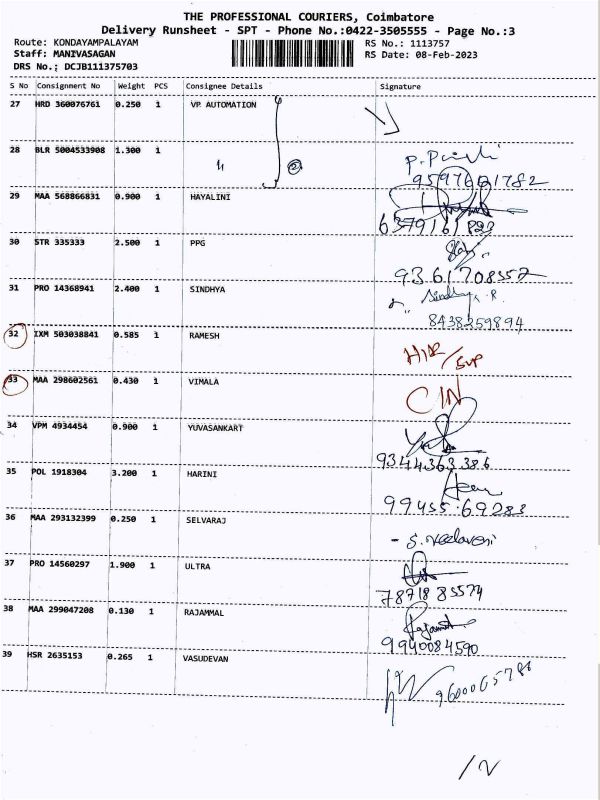 THE PROFESSIONAL COURIERS, Coimbatore
Delivery Runsheet - SPT - Phone No.:0422-3505555 - Page No.:3
Route: KONDAYAMPALAYAM RS No.: 1113757
Staff: MANIVASAGAN RS Date: 08-Feb-2023
DRS No.; DCJB111375703
S No Consignment No Weight PCS Consignee Details Signature
27 HRD 360076761 0.250 1 VP AUTOMATION
28 BLR 5004533908 1.300 1
29 MAA 568866831 0.900 1 HAYALINI
30 STR 335333 2.500 1 PPG
9361708352
31 PRO 14368941 2.400 1 SINDHYA
Sindhya R.
8438259894
32 IXM 503038841 0.585 1 RAMESH
33 MAA 298602561 0.430 1 VIMALA
34 VPM 4934454 0.900 1 YUVASANKART
9344363386
35 POL 1918304 3.200 1 HARINI
99455.69283
36 MAA 293132399 0.250 1 SELVARAJ
37 PRO 14560297 1.900 1 ULTRA
7871885574
38 MAA 299047208 0.130 1 RAJAMMAL
9940084590
39 HSR 2635153 0.265 1 VASUDEVAN